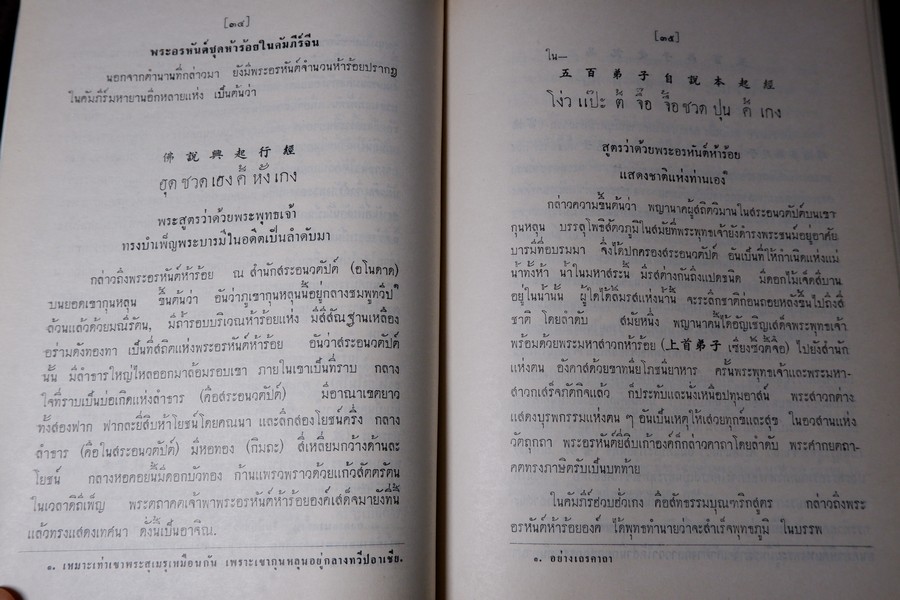 [๓๔]
พระอรหันต์ชุดห้าร้อยในคัมภีร์จีน
นอกจากตำนานที่กล่าวมา ยังมีพระอรหันต์จำนวนห้าร้อยปรากฏ
ในคัมภีร์มหายานอีกหลายแห่ง เป็นต้นว่า
佛說興起行經
ฮุด ซวด เฮง คี้ หั่ง เกง
พระสูตรว่าด้วยพระพุทธเจ้า
ทรงบำเพ็ญพระบารมีในอดีตเป็นลำดับมา
กล่าวถึงพระอรหันต์ห้าร้อย ณ สำนักสระอนวตัปต์ (อโนดาต)
บนยอดเขากุนหลุน ขึ้นต้นว่า อันว่าภูเขากุนหลุนนี้อยู่กลางชมพูทวีป๑
ล้วนแล้วด้วยมณีรัตน, มีถ้ำรอบบริเวณห้าร้อยแห่ง มีสีสัณฐานเหลือง
อร่ามดังทองทา เป็นที่สถิตแห่งพระอรหันต์ห้าร้อย อันว่าสระอนวตัปต์
นั้น มีลำธารใหญ่ไหลออกมาล้อมรอบเขา ภายในเขาเป็นที่ราบ กลาง
ใจที่ราบเป็นบ่อเกิดแห่งลำธาร (คือสระอนวตัปต์) มีอาณาเขตยาว
ทั้งสองฟาก ฟากละยี่สิบห้าโยชน์โดยคณนา และลึกสองโยชน์ครึ่ง กลาง
ลำธาร (คือในสระอนวตัปต์) มีหอทอง (กิมถะ) สี่เหลี่ยมกว้างด้านละ
โยชน์ กลางหอคอยนี้มีดอกบัวทอง ก้านแพรวพราวด้วยแก้วสัตตรัตน
ในเวลาดิถีเพ็ญ พระตถาคตเจ้าพาพระอรหันต์ห้าร้อยองค์เสด็จมายังที่นี้
แล้วทรงแสดงเทศนา ดั่งนี้เป็นอาจิณ.
๑. เหมาะเท่าเขาพระสุเมรุเหมือนกัน เพราะเขากุนหลุนอยู่กลางทวีปอาเซีย.
[๓๕]
ใน—
五百弟子自說本起經
โง่ว แป๊ะ ตี้ จื๊อ จื้อ ซวด ปุน คี้ เกง
สูตรว่าด้วยพระอรหันต์ห้าร้อย
แสดงชาติแห่งท่านเอง๑
กล่าวความขึ้นต้นว่า พญานาคผู้สถิตวิมานในสระอนวตัปต์บนเขา
กุนหลุน บรรลุโพธิสัตวภูมิในสมัยที่พระพุทธเจ้ายังดำรงพระชนม์อยู่อาศัย
บารมีที่อบรมมา จึ่งได้ปกครองสระอนวตัปต์ อันเป็นที่ให้กำเนิดแห่งแม่
น้ำทั้งห้า น้ำในมหาสระนี้ มีรสต่างกันถึงแปดชนิด มีดอกไม้เจ็ดสีบาน
อยู่ในน้ำนั้น ผู้ใดได้ลิ้มรสแห่งน้ำนี้ จะระลึกชาติก่อนถอยหลังขึ้นไปถึงสี่
ชาติ โดยลำดับ สมัยหนึ่ง พญานาคนี้ได้อัญเชิญเสด็จพระพุทธเจ้า
พร้อมด้วยพระมหาสาวกห้าร้อย (上首弟子 เซี่ยงซิ่วตี้จื๊อ) ไปยังสำนัก
แห่งตน อังคาสด้วยขาทนียโภชนียาหาร ครั้นพระพุทธเจ้าและพระมหา-
สาวกเสร็จภัตกิจแล้ว ก็ประทับและนั่งเหนือปทุมอาสน์ พระสาวกต่าง
แสดงบุรพกรรมแห่งตน ๆ อันเป็นเหตุให้เสวยทุกข์และสุข ในอวสานแห่ง
วัตถุกถา พระอรหันต์ยี่สิบเก้าองค์ก็กล่าวคาถาโดยลำดับ พระศากยตถา-
คตทรงภาษิตรับเป็นบทท้าย
ในคัมภีร์ฮ่วบฮั่วเกง คือสัทธรรมบุณฑริกสูตร กล่าวถึงพระ
อรหันต์ห้าร้อยองค์ ได้พุทธทำนายว่าจะสำเร็จพุทธภูมิ ในบรรพ
๑. อย่างเถรคาถา